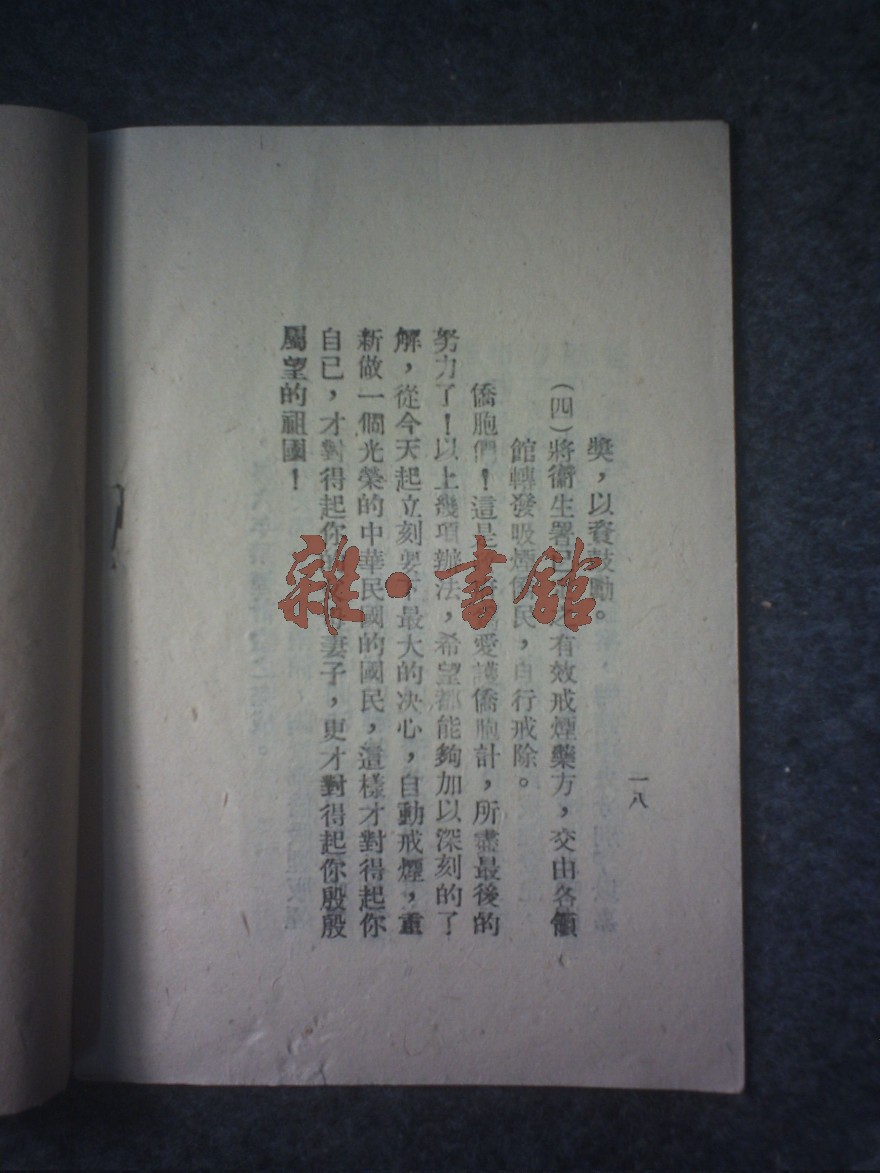 一八
獎，以資鼓勵。
（四）將衞生署已　之有效戒煙藥方，交由各領
館轉發吸煙僑民，自行戒除。
僑胞們！這是　愛護僑胞計，所盡最後的
努力了！以上幾項辦法，希望都能夠加以深刻的了
解，從今天起立刻要下最大的决心，自動戒煙，重
新做一個光榮的中華民國的國民，這樣才對得起你
自已，才對得起你的　妻子，更才對得起你殷殷
屬望的祖國！
雜·書館